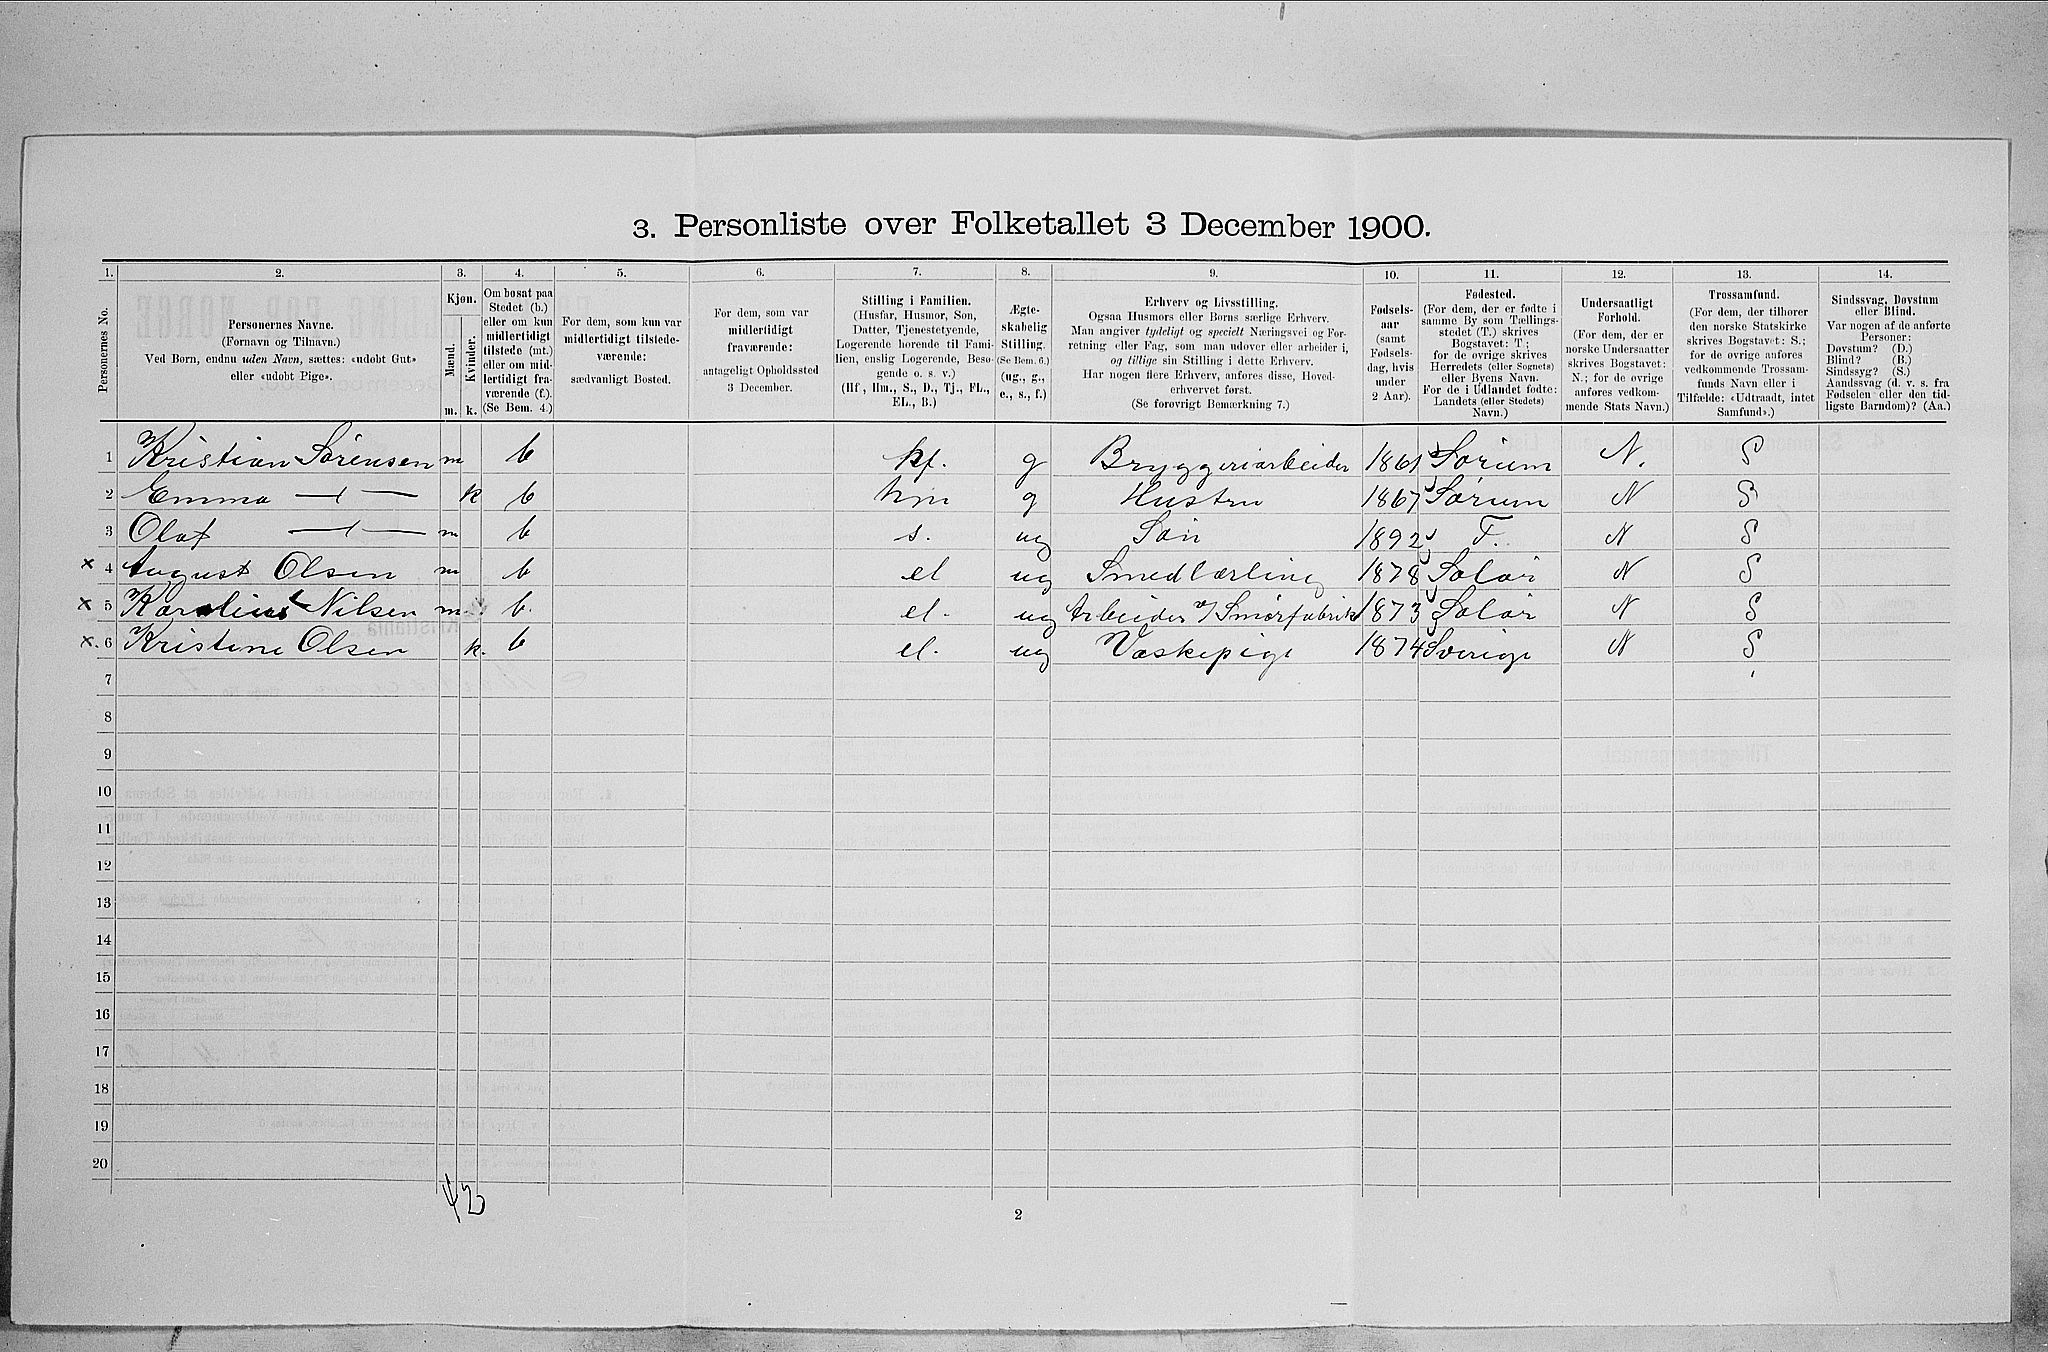 3. Personliste over Folketallet 3 December 1900.
1. 2. 3. 4. 5. 6. 7. 8. 9. 10. 11. 12. 13. 14.
Personernes No.
Personernes Navne.
(Fornavn og Tilnavn.)
Ved Børn, endnu uden Navn, sættes: «udøbt Gut»
eller «udøbt Pige».
Kjøn.
Mænd.
Kvinder.
m. k.
Om bosat paa
Stedet (b.)
eller om kun
midlertidigt
tilstede (mt.)
eller om mid-
lertidigt fra-
værende (f.).
(Se Bem. 4.)
For dem, som kun var
midlertidigt tilstede-
værende:
sædvanligt Bosted.
For dem, som var
midlertidigt
fraværende:
antageligt Opholdssted
3 December.
Stilling i Familien.
(Husfar, Husmor, Søn,
Datter, Tjenestetyende,
Logerende hørende til Fami-
lien, enslig Logerende, Besø-
gende o. s. v.)
(Hf, Hm., S., D., Tj., FL.,
EL., B.)
Ægte-
skabelig
Stilling.
(Se Bem. 6.)
(ug., g.,
e., s., f.)
Erhverv og Livsstilling.
Ogsaa Husmors eller Børns særlige Erhverv.
Man angiver tydeligt og specielt Næringsvei og For-
retning eller Fag, som man udøver eller arbeider i,
og tillige sin Stilling i dette Erhverv.
Har nogen flere Erhverv, anføres disse, Hoved-
erhvervet først.
(Se forøvrigt Bemærkning 7.)
Fødsels-
aar
(samt
Fødsels-
dag, hvis
under
2 Aar).
Fødested.
(For dem, der er fødte i
samme By som Tællings-
stedet (T.) skrives
Bogstavet: T;
for de øvrige skrives
Herredets (eller Sognets)
eller Byens Navn.
For de i Udlandet fødte:
Landets (eller Stedets)
Navn.)
Undersaatligt
Forhold.
(For dem, der er
norske Undersaatter
skrives Bogstavet:
N.; for de øvrige
anføres vedkom-
mende Stats Navn.)
Trossamfund.
(For dem, der tilhører
den norske Statskirke
skrives Bogstavet: S.;
for de øvrige anføres
vedkommende Trossam-
funds Navn eller i
Tilfælde: «Udtraadt, intet
Samfund».)
Sindssvag, Døvstum
eller Blind.
Var nogen af de anførte
Personer:
Døvstum? (D.)
Blind? (B.)
Sindssyg? (S.)
Aandssvag (d. v. s. fra
Fødselen eller den tid-
ligste Barndom)? (Aa.)
1 Kristian Sørensen m b hf. g Bryggeriarbeider 1861 Sørum N. S
2 Emma —〃— k b hm g Hustru 1867 Sørum N S
3 Olaf —〃— m b s. ug Søn 1892 T. N S
× 4 August Olsen m b el ug Smedlærling 1878 Solør N S
× 5 Karelius Nilsen m. b. el. ug Arbeider v/ Smørfabrik 1873 Solør N S
×. 6 Kristine Olsen k. b el. ug Vaskepige 1874 Sverige N S
7
8
9
10
11
12
13
14
15
16
17
18
19
20
4 2
2